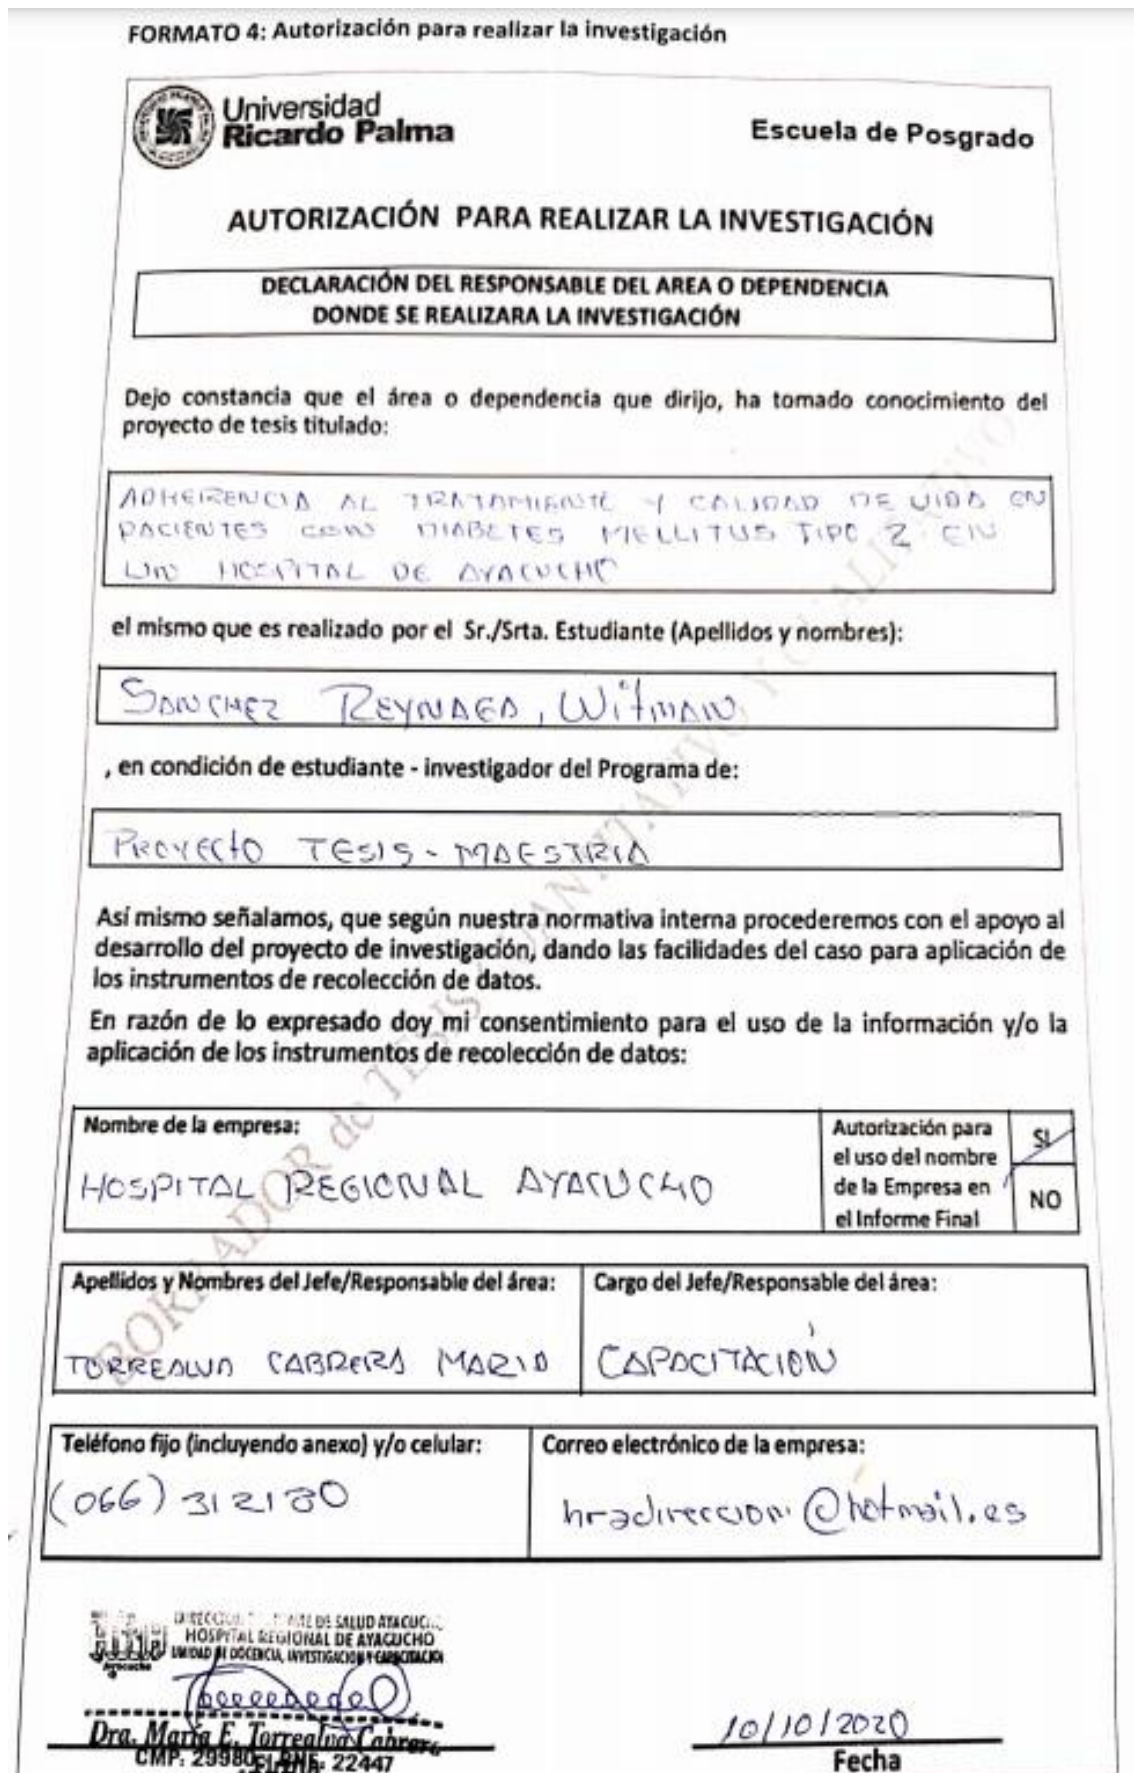 FORMATO 4: Autorización para realizar la investigación
Universidad
Ricardo Palma
Escuela de Posgrado
AUTORIZACIÓN PARA REALIZAR LA INVESTIGACIÓN
DECLARACIÓN DEL RESPONSABLE DEL AREA O DEPENDENCIA
DONDE SE REALIZARA LA INVESTIGACIÓN
Dejo constancia que el área o dependencia que dirijo, ha tomado conocimiento del
proyecto de tesis titulado:
ADHERENCIA AL TRATAMIENTO Y CALIDAD DE VIDA EN
PACIENTES CON DIABETES MELLITUS TIPO 2 EN
UN HOSPITAL DE AYACUCHO
el mismo que es realizado por el Sr./Srta. Estudiante (Apellidos y nombres):
SANCHEZ REYNAGA, WITMAN
, en condición de estudiante - investigador del Programa de:
PROYECTO TESIS - MAESTRIA
Así mismo señalamos, que según nuestra normativa interna procederemos con el apoyo al
desarrollo del proyecto de investigación, dando las facilidades del caso para aplicación de
los instrumentos de recolección de datos.
En razón de lo expresado doy mi consentimiento para el uso de la información y/o la
aplicación de los instrumentos de recolección de datos:
Nombre de la empresa:
HOSPITAL REGIONAL AYACUCHO
Autorización para
el uso del nombre
de la Empresa en
el Informe Final
SI
NO
Apellidos y Nombres del Jefe/Responsable del área:
TORREALVA CABRERA MARIA
Cargo del Jefe/Responsable del área:
CAPACITACIÓN
Teléfono fijo (incluyendo anexo) y/o celular:
(066) 312180
Correo electrónico de la empresa:
hradireccion@hotmail.es
DE SALUD AYACUCHO
HOSPITAL REGIONAL DE AYACUCHO
UNIDAD DE DOCENCIA, INVESTIGACION Y CAPACITACION
Ayacucho
Dra. María E. Torrealva Cabrera
CMP: 29980 RNE: 22447
10/10/2020
Fecha
BORRADOR de TESIS CUANTITATIVO Y CUALITATIVO